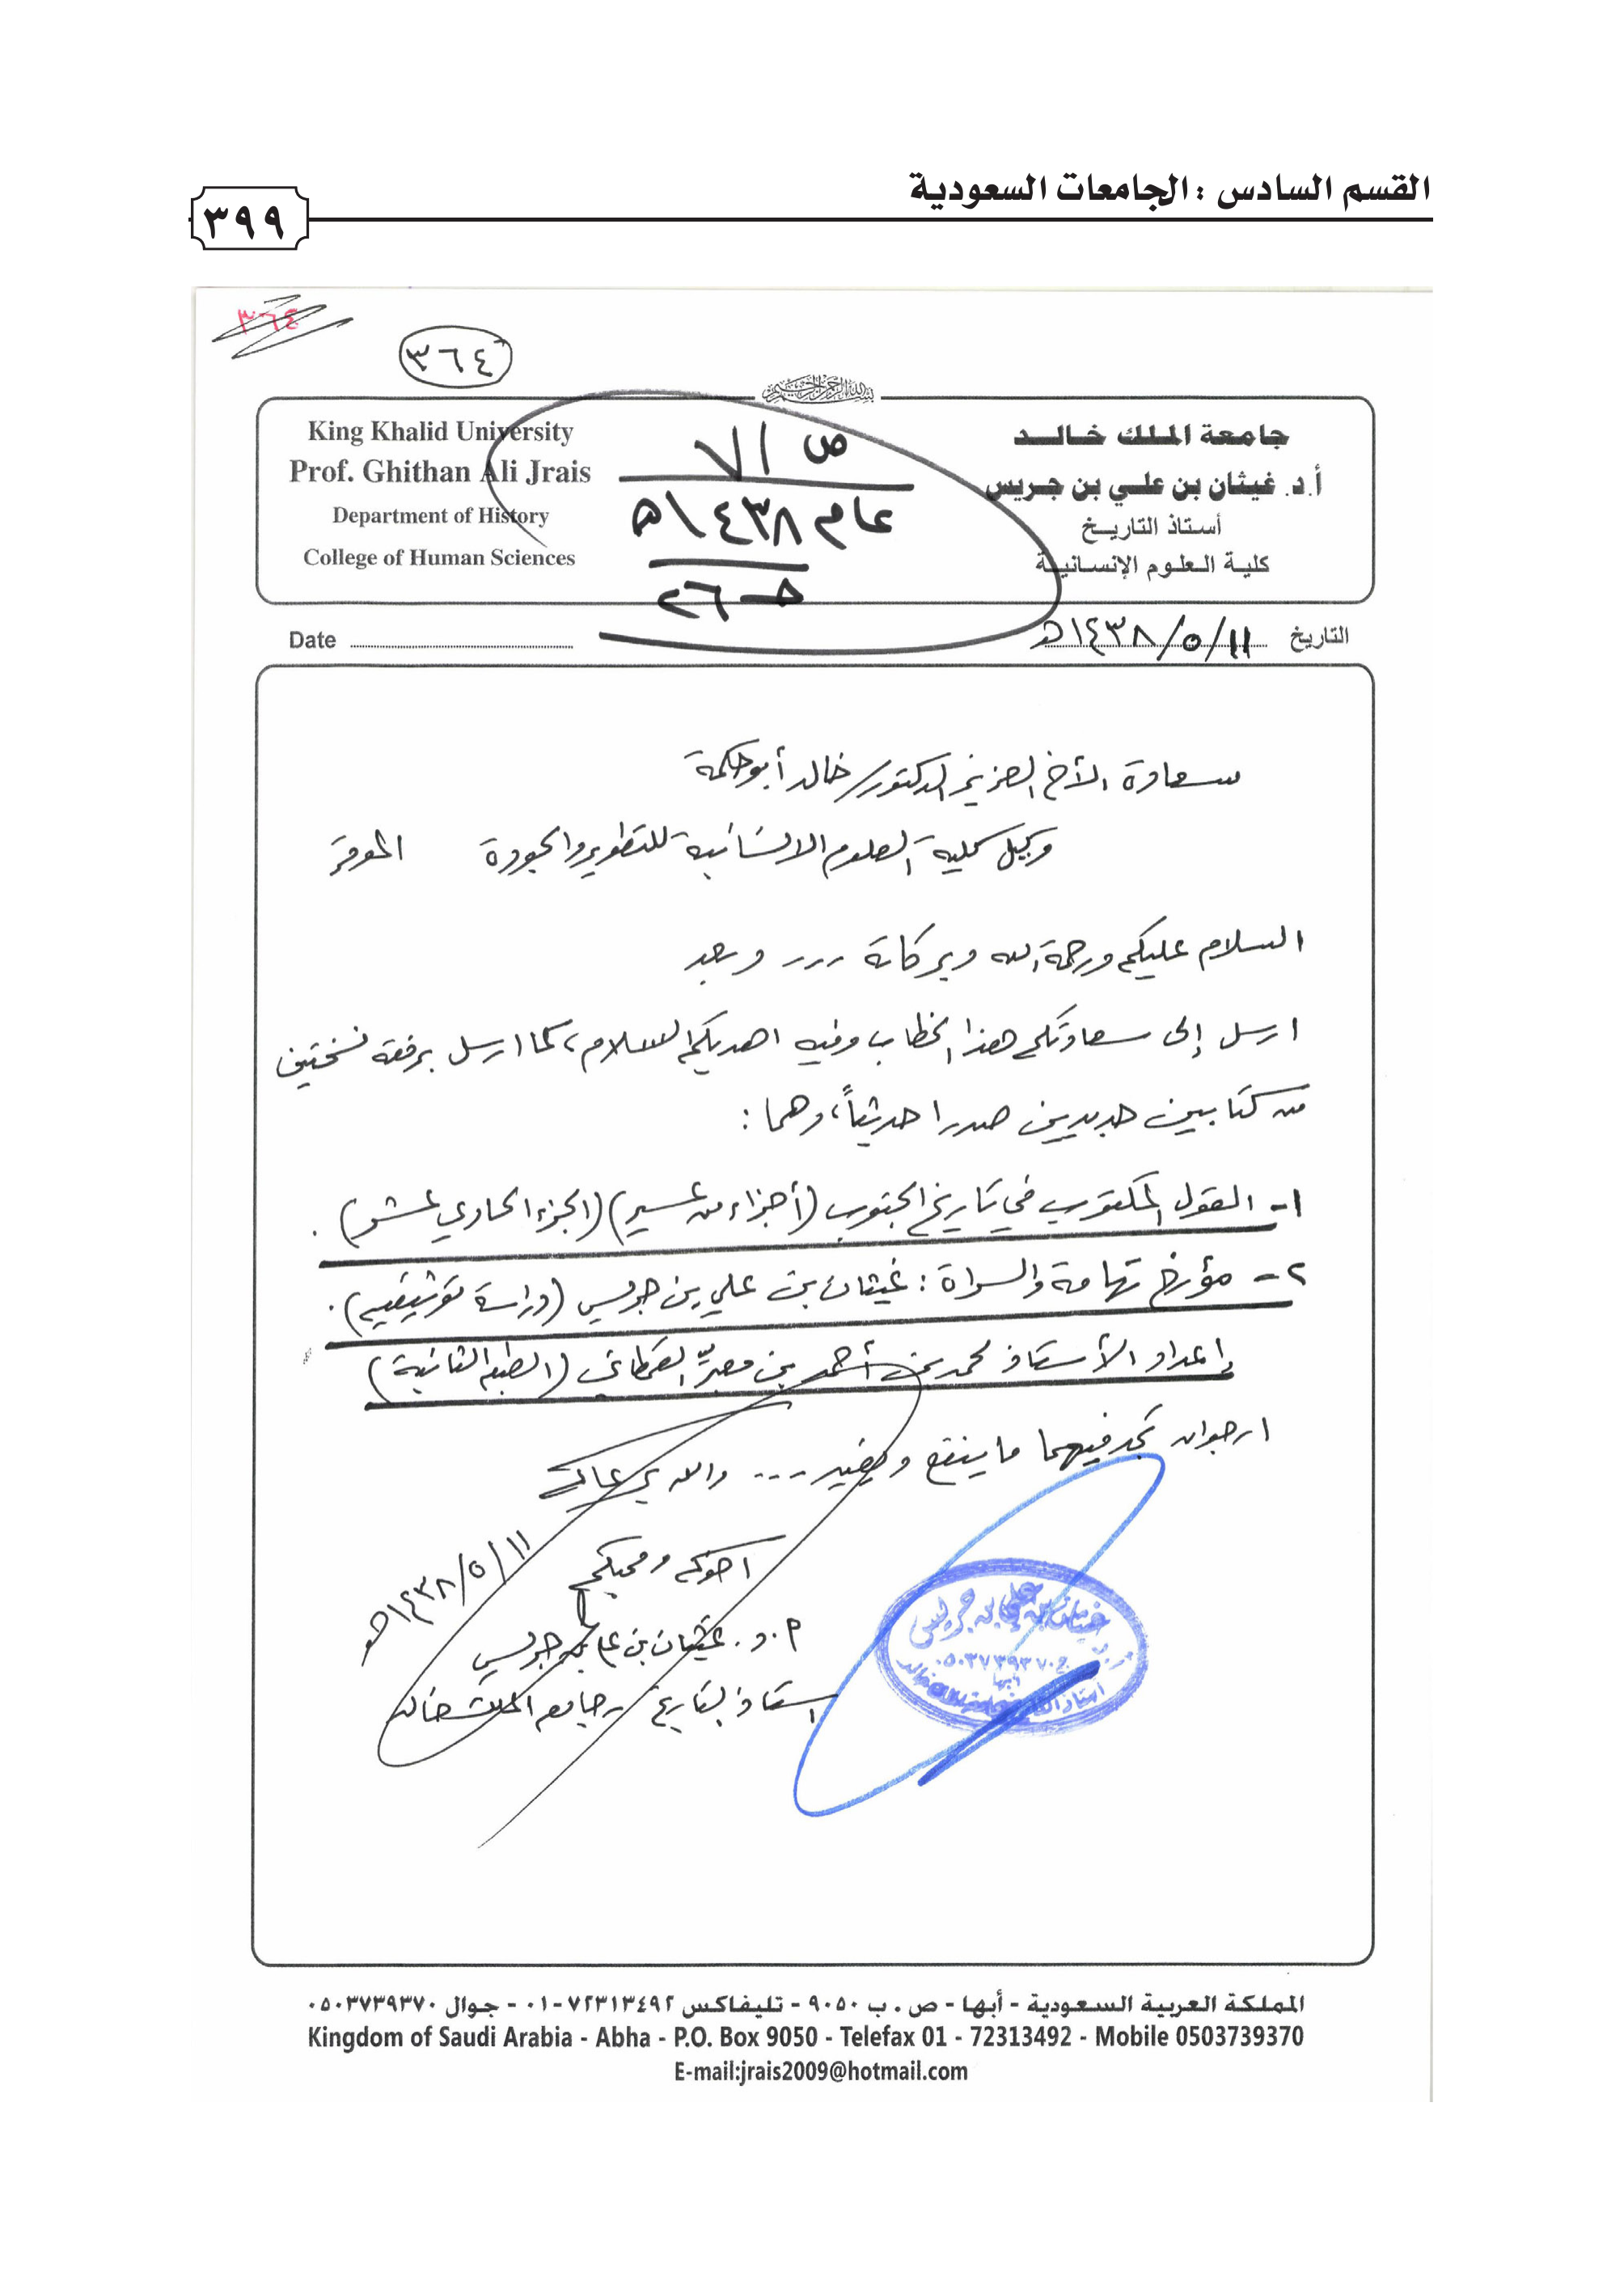 القسم السادس : الجامعات السعودية
٣٩٩
٣٦٤
٣٦٤
بسم الله الرحمن الرحيم
جامعة الملك خالد
أ.د. غيثان بن علي بن جريس
أستاذ التاريخ
كلية العلوم الإنسانية
King Khalid University
Prof. Ghithan Ali Jrais
Department of History
College of Human Sciences
ص ٧١
عام ١٤٣٨هـ
التاريخ ١١/٥/١٤٣٨هـ
Date
سعادة الأخ العزيز الدكتور/ خالد أبو حكمة
وكيل كلية العلوم الانسانية للتطوير والجودة الموقر
السلام عليكم ورحمة الله وبركاته ... وبعد
ارسل إلى سعادتكم هذا الخطاب وفيه اهديكم السلام، كما ارسل برفقه نسختين
من كتابين جديدين صدرا حديثاً، وهما :
١- القول المكتوب في تاريخ الجنوب (أجزاء من عسير) (الجزء الحادي عشر) .
٢- مؤرخ تهامة والسراة : غيثان بن علي بن جريس (دراسة توثيقيه) .
إعداد الأستاذ محمد بن أحمد بن معبر القحطاني (الطبعة الثانية)
ارجو ان تجد فيهما ما ينفع ويفيد ... والله يرعاك
اخوكم ومحبكم
أ.د. غيثان بن علي بن جريس
استاذ التاريخ بجامعة الملك خالد
١١/٥/١٤٣٨هـ
غيثان بن علي بن جريس
ج ٠٥٠٣٧٣٩٣٧٠
أبها
المملكة العربية السعودية - أبها - ص . ب ٩٠٥٠ - تليفاكس ٧٢٣١٣٤٩٢-٠١ - جوال ٠٥٠٣٧٣٩٣٧٠
Kingdom of Saudi Arabia - Abha - P.O. Box 9050 - Telefax 01 - 72313492 - Mobile 0503739370
E-mail:jrais2009@hotmail.com